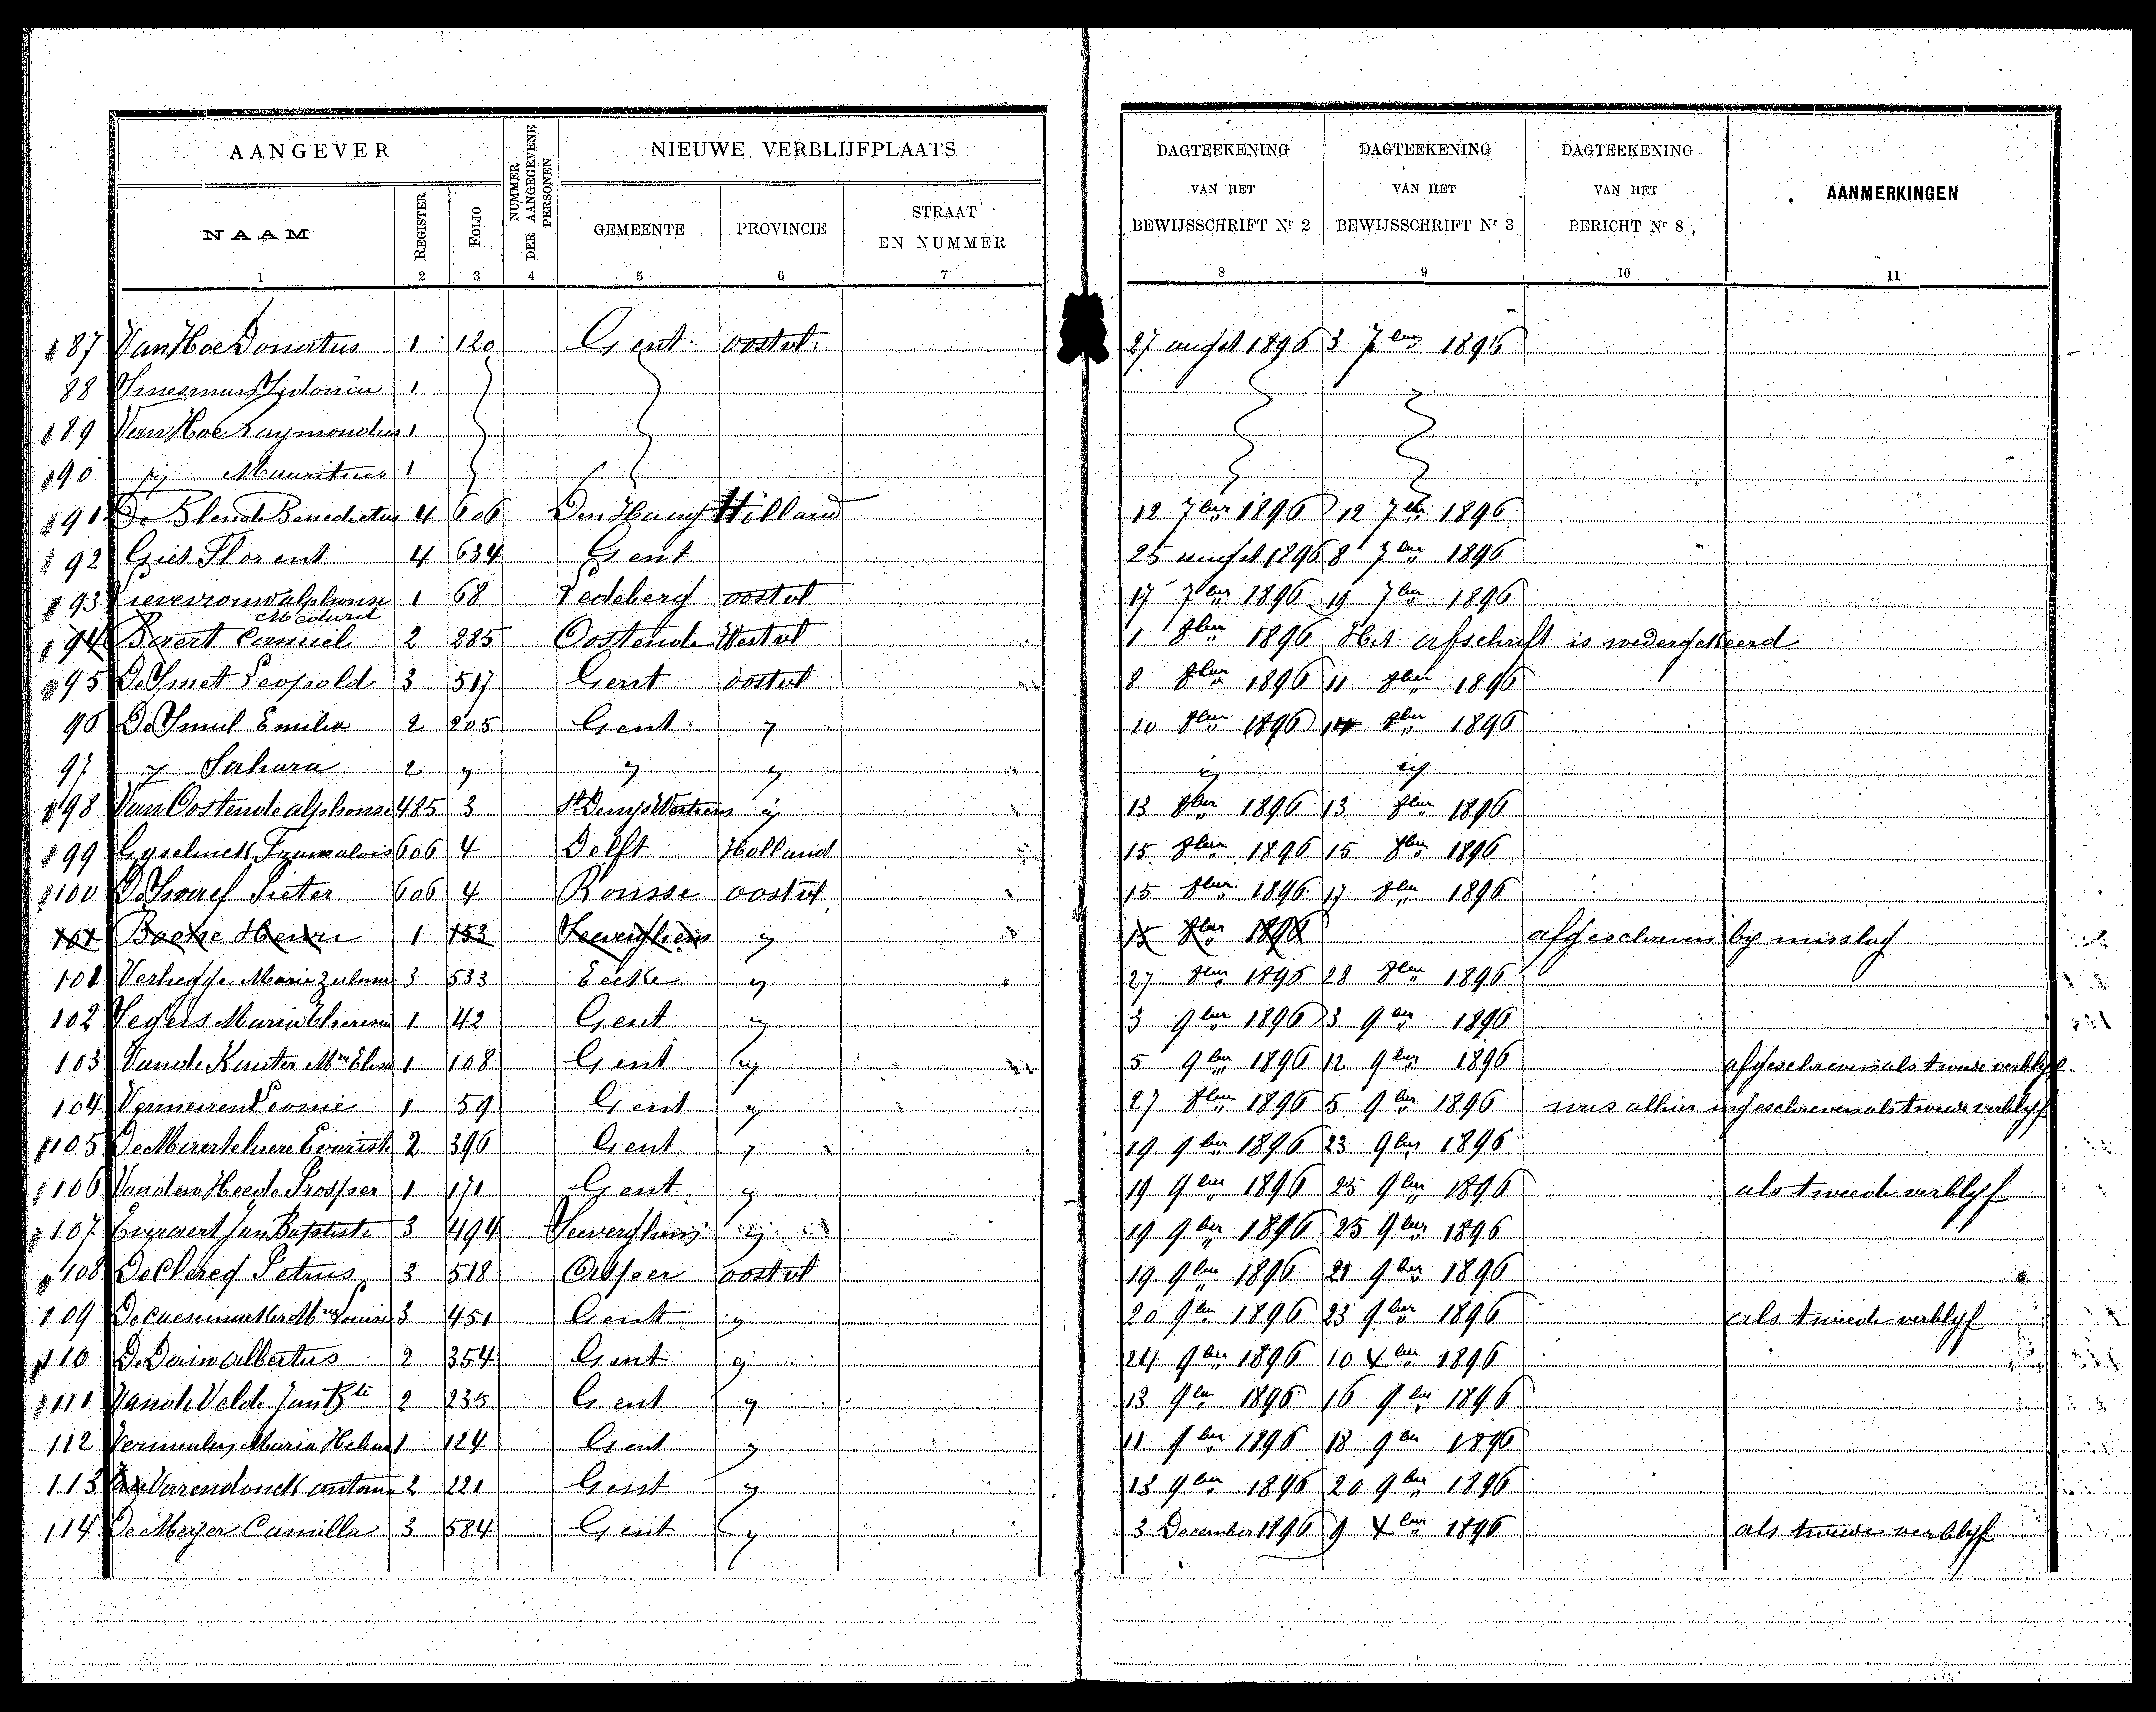 AANGEVER NIEUWE VERBLIJFPLAATS
NUMMER DER AANGEGEVENE PERSONEN
NAAM REGISTER FOLIO GEMEENTE PROVINCIE STRAAT EN NUMMER
DAGTEEKENING VAN HET BEWIJSSCHRIFT Nr 2
DAGTEEKENING VAN HET BEWIJSSCHRIFT Nr 3
DAGTEEKENING VAN HET BERICHT Nr 8
AANMERKINGEN
1 2 3 4 5 6 7 8 9 10 11
87 Van Hoe Donatus 1 120 Gent oostvl. 27 augst 1896 3 7ber 1896
88 Sydonia 1
89 Van Hoe Raymondus 1
90 Mauritius 1
91 De Benedictus 4 606 Den Haag Holland 12 7ber 1896 12 7ber 1896
92 Giet Florent 4 634 Gent 25 augst 1896 8 7ber 1896
93 Lievevrouw alphonse 1 68 Ledeberg oostvl 17 7ber 1896 19 7ber 1896
Medard
94 Camiel 2 285 Oostende Westvl 1 8ber 1896 Het afschrift is wedergekeerd
95 De Smet Leopold 3 517 Gent oostvl 8 8ber 1896 11 8ber 1896
96 De Smul Emilie 2 205 Gent y 10 8ber 1896 14 8ber 1896
97 y 2 y y y
98 Van Oostende alphonse 485 3 St Denys Westrem 13 8ber 1896 13 8ber 1896
99 606 4 Delft Holland 15 8ber 1896 15 8ber 1896
100 Pieter 606 4 Rousse oostvl 15 8ber 1896 17 8ber 1896
101 Henri 1 153 y 15 8ber 1896 afgeschreven by misslag
101 Verhegge Marie Zulma 3 533 Eecke y 27 8ber 1896 28 8ber 1896
102 Maria Theresia 1 42 Gent 3 9ber 1896 3 9ber 1896
103 Mie Elisa 1 108 Gent 5 9ber 1896 12 9ber 1896 afgeschreven als tweede verblyf
104 Vermeiren Leonie 1 59 Gent y 27 8ber 1896 5 9ber 1896 was alhier ingeschreven als tweede verblyf
105 Evarist 2 396 Gent y 19 9ber 1896 23 9ber 1896
106 Van den Heede Prosper 1 171 Gent y 19 9ber 1896 25 9ber 1896 als tweede verblyf
107 Evraert Jan Baptiste 3 494 19 9ber 1896 25 9ber 1896
108 De Clercq Petrus 3 518 Asper oostvl 19 9ber 1896 21 9ber 1896
109 Louise 3 451 Gent y 20 9ber 1896 23 9ber 1896 als tweede verblyf
110 Albertus 2 354 Gent y 24 9ber 1896 10 Xber 1896
111 Van de Velde Jan Bte 2 235 Gent y 13 9ber 1896 16 9ber 1896
112 Maria 1 124 Gent y 11 9ber 1896 18 9ber 1896
113 Varendonck 2 221 Gent y 13 9ber 1896 20 9ber 1896
114 De Meyer Camilla 3 584 Gent y 3 December 1896 9 Xber 1896 als tweede verblyf